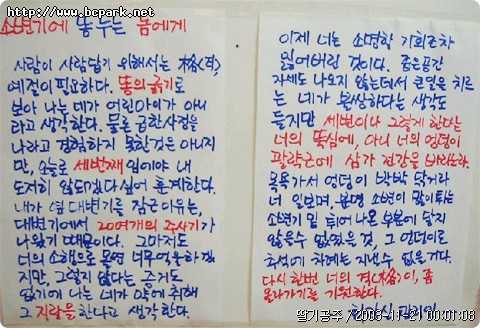 http://www.hcpark.net/
소변기에 똥 누는 놈에게
사람이 사람답기 위해서는 格(격),
예절이 필요하다. 똥의 굵기로
보아 나는 네가 어린아이가 아니
라고 생각한다. 물론 급한사정을
나라고 경험하지 못한것은 아니지
만, 오늘로 세번째 임에야 내
도저히 안되겠다 싶어 훈계한다.
내가 옆 대변기를 잠근 이유는,
대변기에서 20여개의 주사기가
나왔기 때문이다. 그마저도
너의 소행으로 몰면 너무 억울하겠
지만, 그렇지 않다는 증거도
없기에 나는 네가 약에 취해
그 지랄을 한다고 생각한다.
이제 너는 소명할 기회조차
잃어버린 것이다. 좁은공간
자세도 나오지 않는데서 큰일을 치르
는 네가 불쌍하다는 생각도
들지만 세번이나 그렇게 한다는
너의 뚝심에, 아니 너의 엉덩이
괄약근에 삼가 건강을 바라노라.
목욕가서 엉덩이 박박 닦거라
너 일보며, 분명 소변이 많이튀는
소변기 밑 튀어 나온 부분에 닿지
않을수 없었을 것, 그 엉덩이로
추석에 차례는 지낼수 없을거다.
다시 한번 너의 격(格)이, 좀
올라가기를 기원한다.
딸기공주 / 2003-11-21 00:01:08